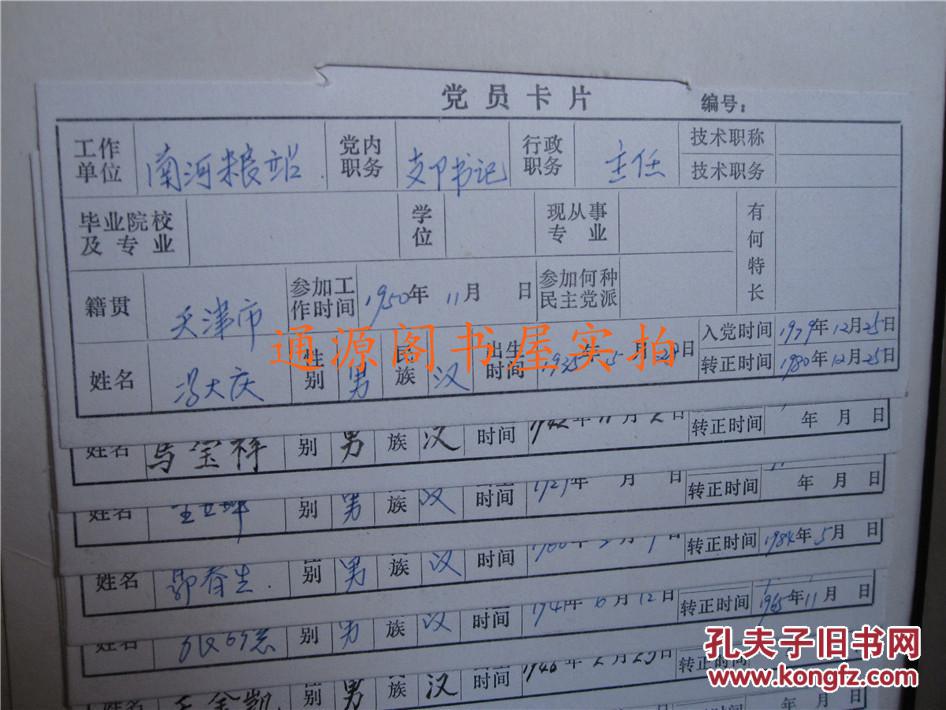 党员卡片 编号：
工作单位 南河粮站 党内职务 支部书记 行政职务 主任 技术职称
技术职务
毕业院校及专业 学位 现从事专业 有何特长
籍贯 天津市 参加工作时间 1950年 11月 日 参加何种民主党派
入党时间 1979年12月25日
姓名 冯大庆 性别 男 民族 汉 出生时间 年 月 日 转正时间 1980年12月25日
通源阁书屋实拍
姓名 马宝祥 别 男 族 汉 时间 1942年11月2日 转正时间 年 月 日
姓名 别 男 族 汉 时间 年 月 日 转正时间 年 月 日
姓名 郭春生 别 男 族 汉 时间 月 日 转正时间 1984年5月 日
姓名 别 男 族 汉 时间 1941年6月12日 转正时间 1965年11月 日
姓名 王金凯 别 男 族 汉 时间 1948年2月23日 转正时间
年 月 日
孔夫子旧书网
www.kongfz.com